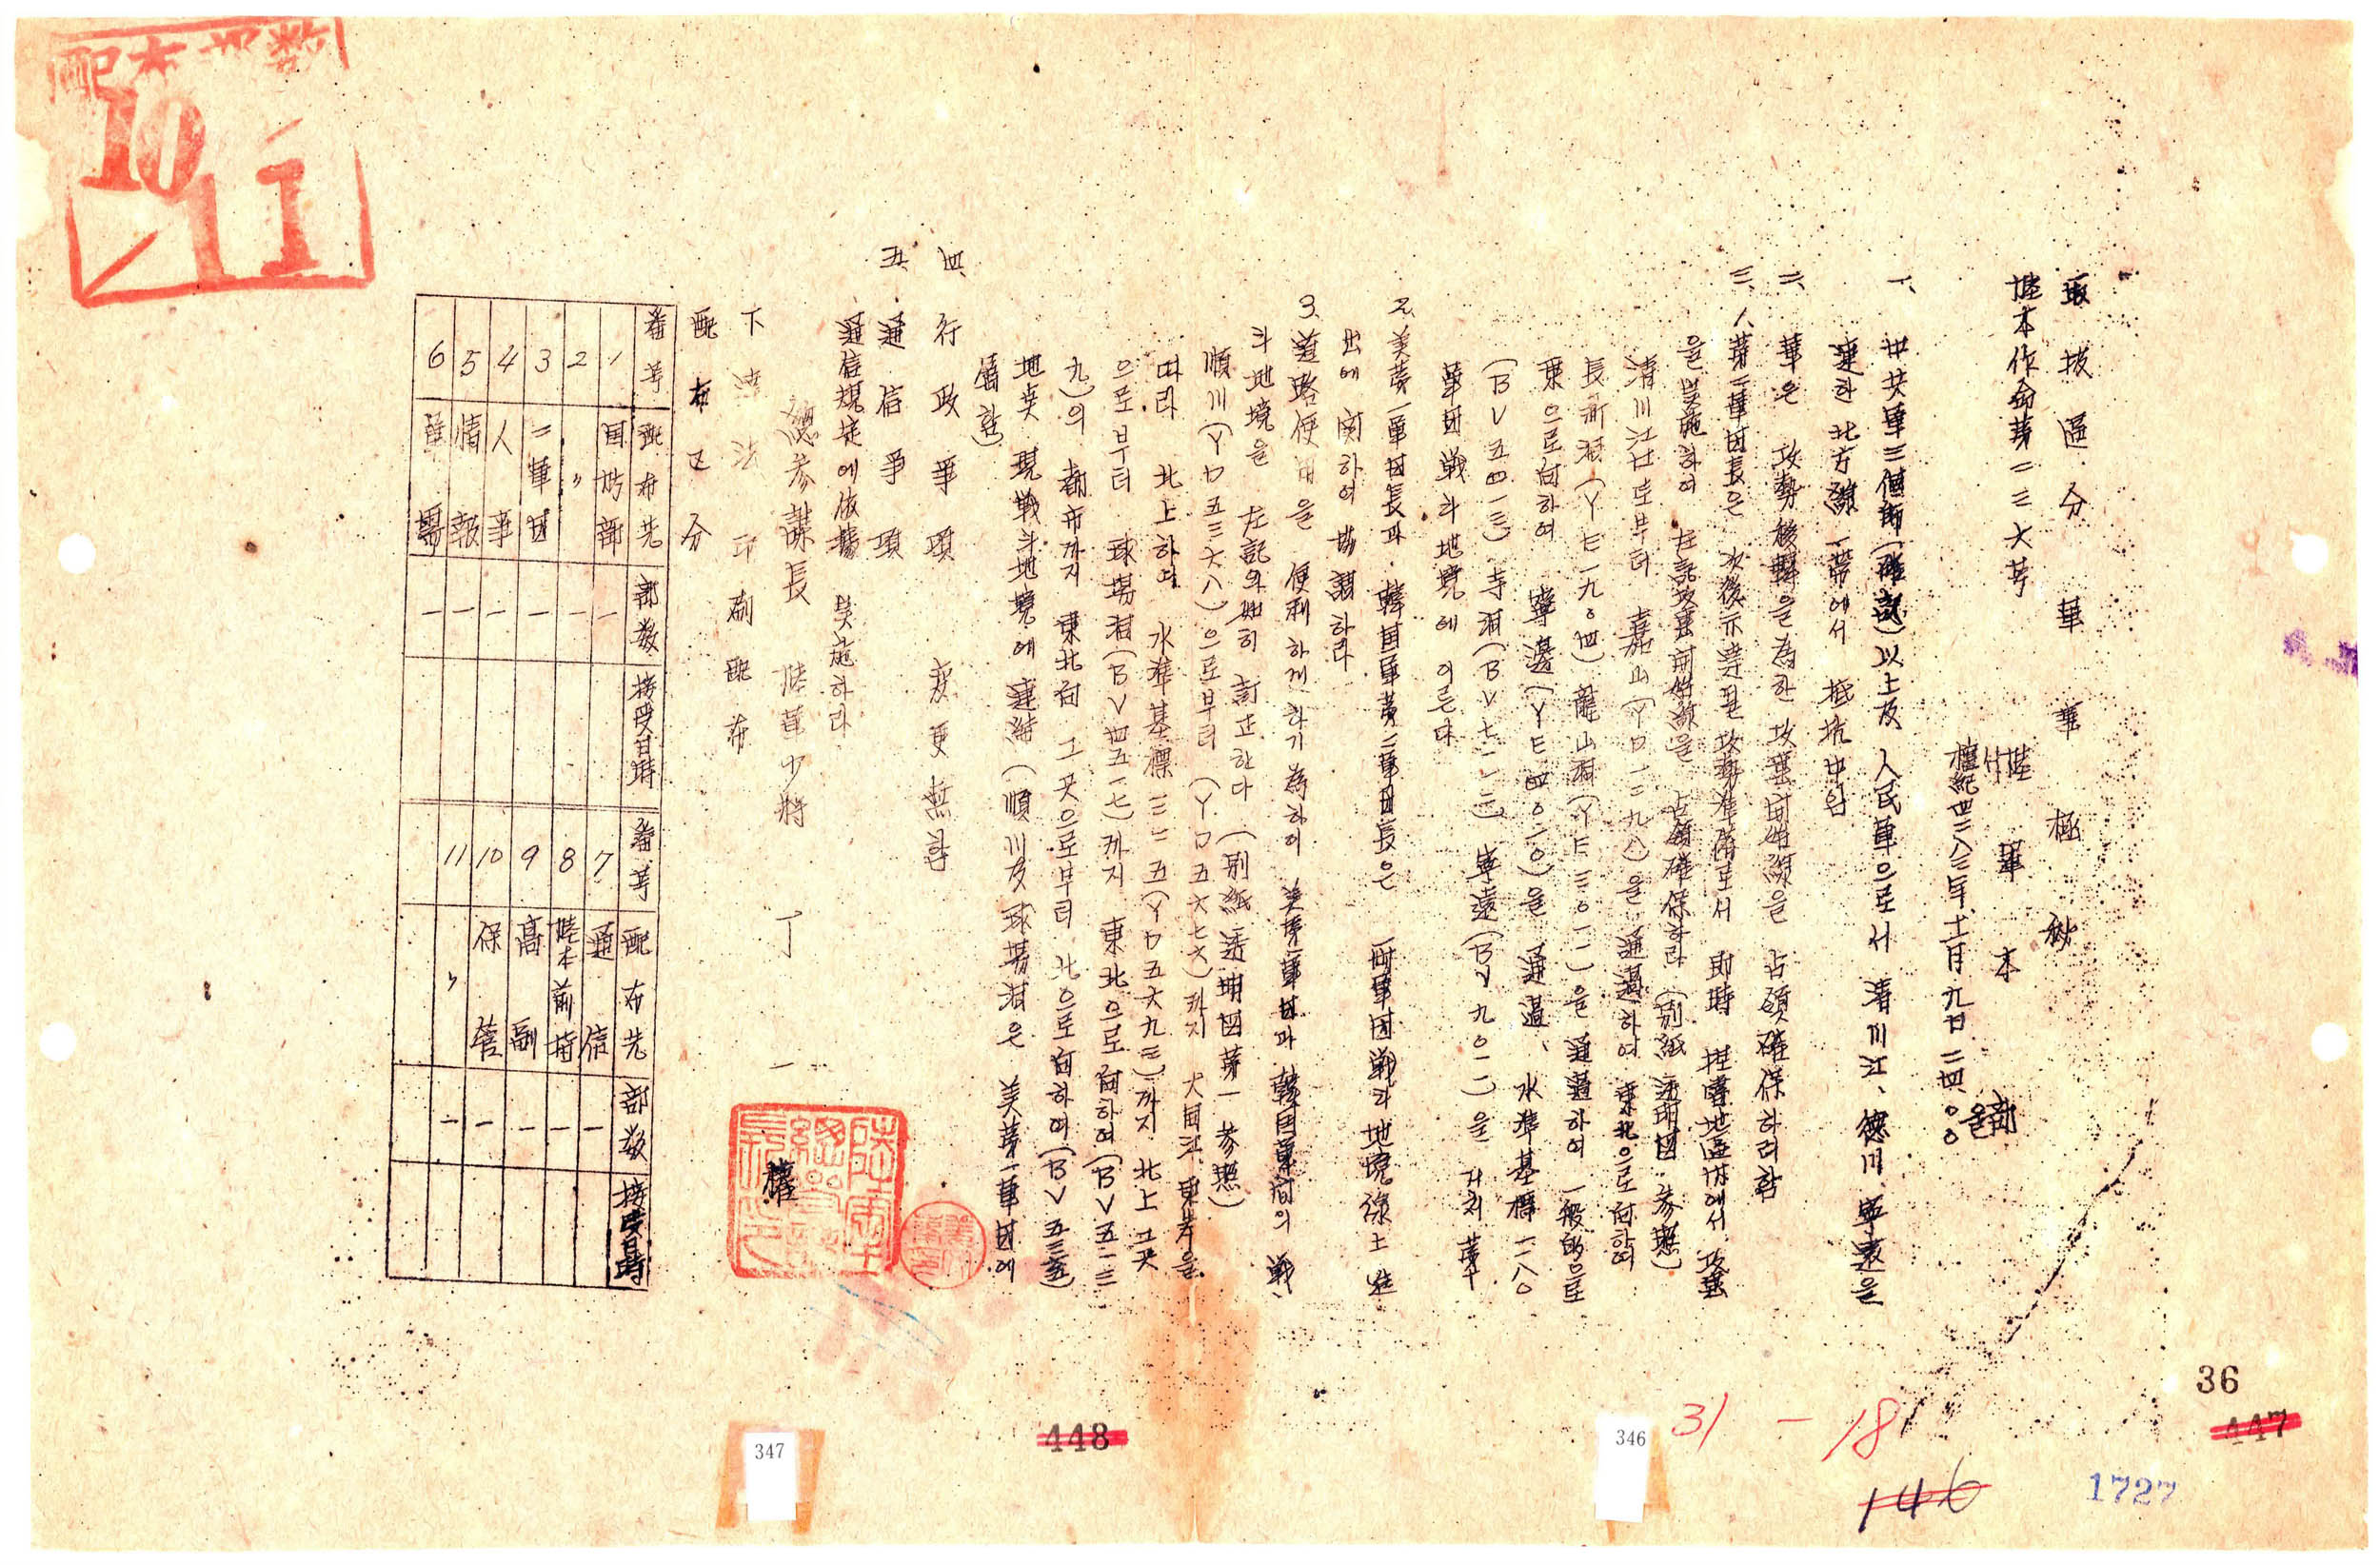 取扱區分 軍 軍極秘
陸本作命第二三六号
陸軍本部
檀紀四二八三年十一月九日二四〇〇
一、 中共軍三個師(確認)以上及 人民軍으로서 清川江、德川、寧遠을
連한 北方線一帶에서 抵抗中임
二、 軍은 攻勢後轉을 為한 攻擊開始線을 占領確保하려함
三、 1、第二軍団長은 次後示達될 攻勢準備로서 即時 担當地區内에서 攻擊
을 実施하여 左記攻擊開始線을 占領確保하라 (別紙 透明図 参照)
清川江江口로부터 嘉山(YD二二九八)을 通過하여 東北으로 向하여
長新洞(YE一九〇四) 龍山洞(YE三〇一一)을 通過하여 一般的으로
東으로向하여 寧邊(YE四〇二〇)을 通過、水準基標一二八〇
(BV五四一三) 寺洞(BV七一一三) 寧遠(BV九〇一一)을 거처 第十
軍団戦斗地境에 이른다
2、美第一軍団長과 韓国軍第二軍団長은 両軍団戦斗地境線上 進
出에 関하여 協調하라
3、道路使用을 便利하게 하기 為하여 美第一軍団과 韓国軍間의 戦
斗地境을 左記와如히 訂正한다 (別紙透明図第一参照)
順川(YD五三六八)으로부터 (YD五六七六)까지 大同江 東岸을
따라 北上하여 水準基標三二五(YD五六九三)까지 北上 그곳
으로부터 球場洞(BV四五一七)까지 東北으로 向하여(BV五二三
九)의 都市까지 東北向 그곳으로부터 北으로 向하여(BV五三五〇)
地点 現戦斗地境에 連結 (順川及 球場洞은 美第一軍団에
属함)
四、 行政事項 変更無함
五、 通信事項
通信規定에依據 実施하라
總参謀長 陸軍少將 丁一權
下達法 印刷配布
配布区分
番号 配布先 部数 接受日時 番号 配布先 部数 接受日時
1 国防部 一 7 通信 一
2 〃 一 8 陸本前指 一
3 二軍団 一 9 高副 一
4 人事 一 10 保管 一
5 情報 一 11 〃 一
6 軍需 一
配本部数
10
11
36
447
448
346
347
31-18
146
1727